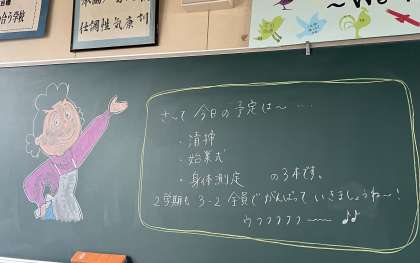 う学校
仕調性気康訓
~We
さ~て 今日の予定は~ ....
・清掃
・始業式
・身体測定 の3本です。
2学期も 3-2 全員で がんばって いきましょうね~!
ウフフフフフ~~ ♪♪